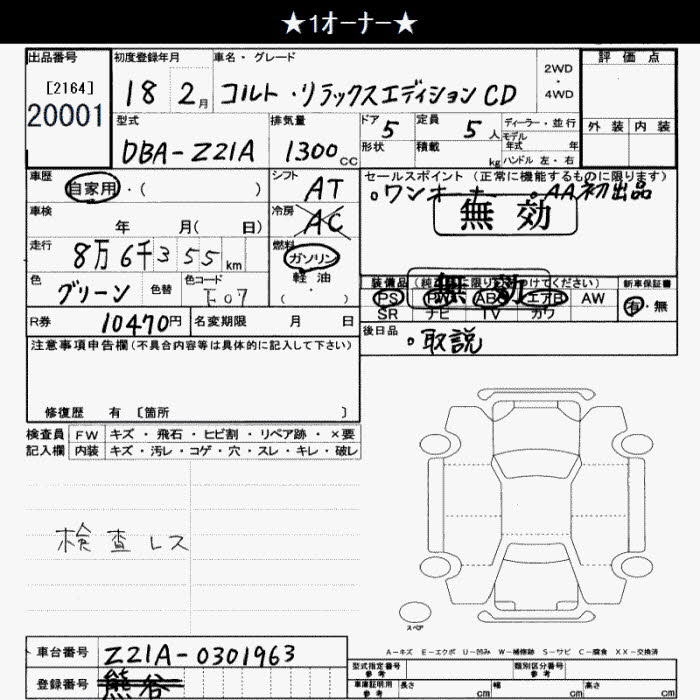 ★1オーナー★
出品番号 [2164] 20001
初度登録年月 18 2月
車名・グレード コルト・リラックスエディションCD
2WD・4WD
評価点
外装 内装
型式 DBA-Z21A
排気量 1300cc
ドア 5 形状
定員 5人 積載 kg
ディーラー・並行
モデル年式 年
ハンドル 左・右
車歴 自家用・( )
シフト AT
セールスポイント (正常に機能するものに限ります)
。ワンオーナー 。AA初出品
無効
車検 年 月( 日)
冷房 AC
走行 8万6千355km
燃料 ガソリン・軽油・( )
色 グリーン 色替 色コード F07
装備品
無効
PS PW ABS エアB AW
SR ナビ TV カワ
新車保証書 有・無
R券 10470円 名変期限 月 日
後日品 。取説
注意事項申告欄(不具合内容等は具体的に記入して下さい)
修復歴 有 [箇所 ]
検査員 FW キズ・飛石・ヒビ割・リペア跡・×要
記入欄 内装 キズ・汚レ・コゲ・穴・スレ・キレ・破レ
検査レス
スペア
A-キズ E-エクボ U-凹み W-補修跡 S-サビ C-腐食 XX-交換済
車台番号 Z21A-0301963
登録番号 熊谷
型式指定番号 参考 類別区分番号 参考
車庫証明用 参考 長さ cm 幅 cm 高さ cm